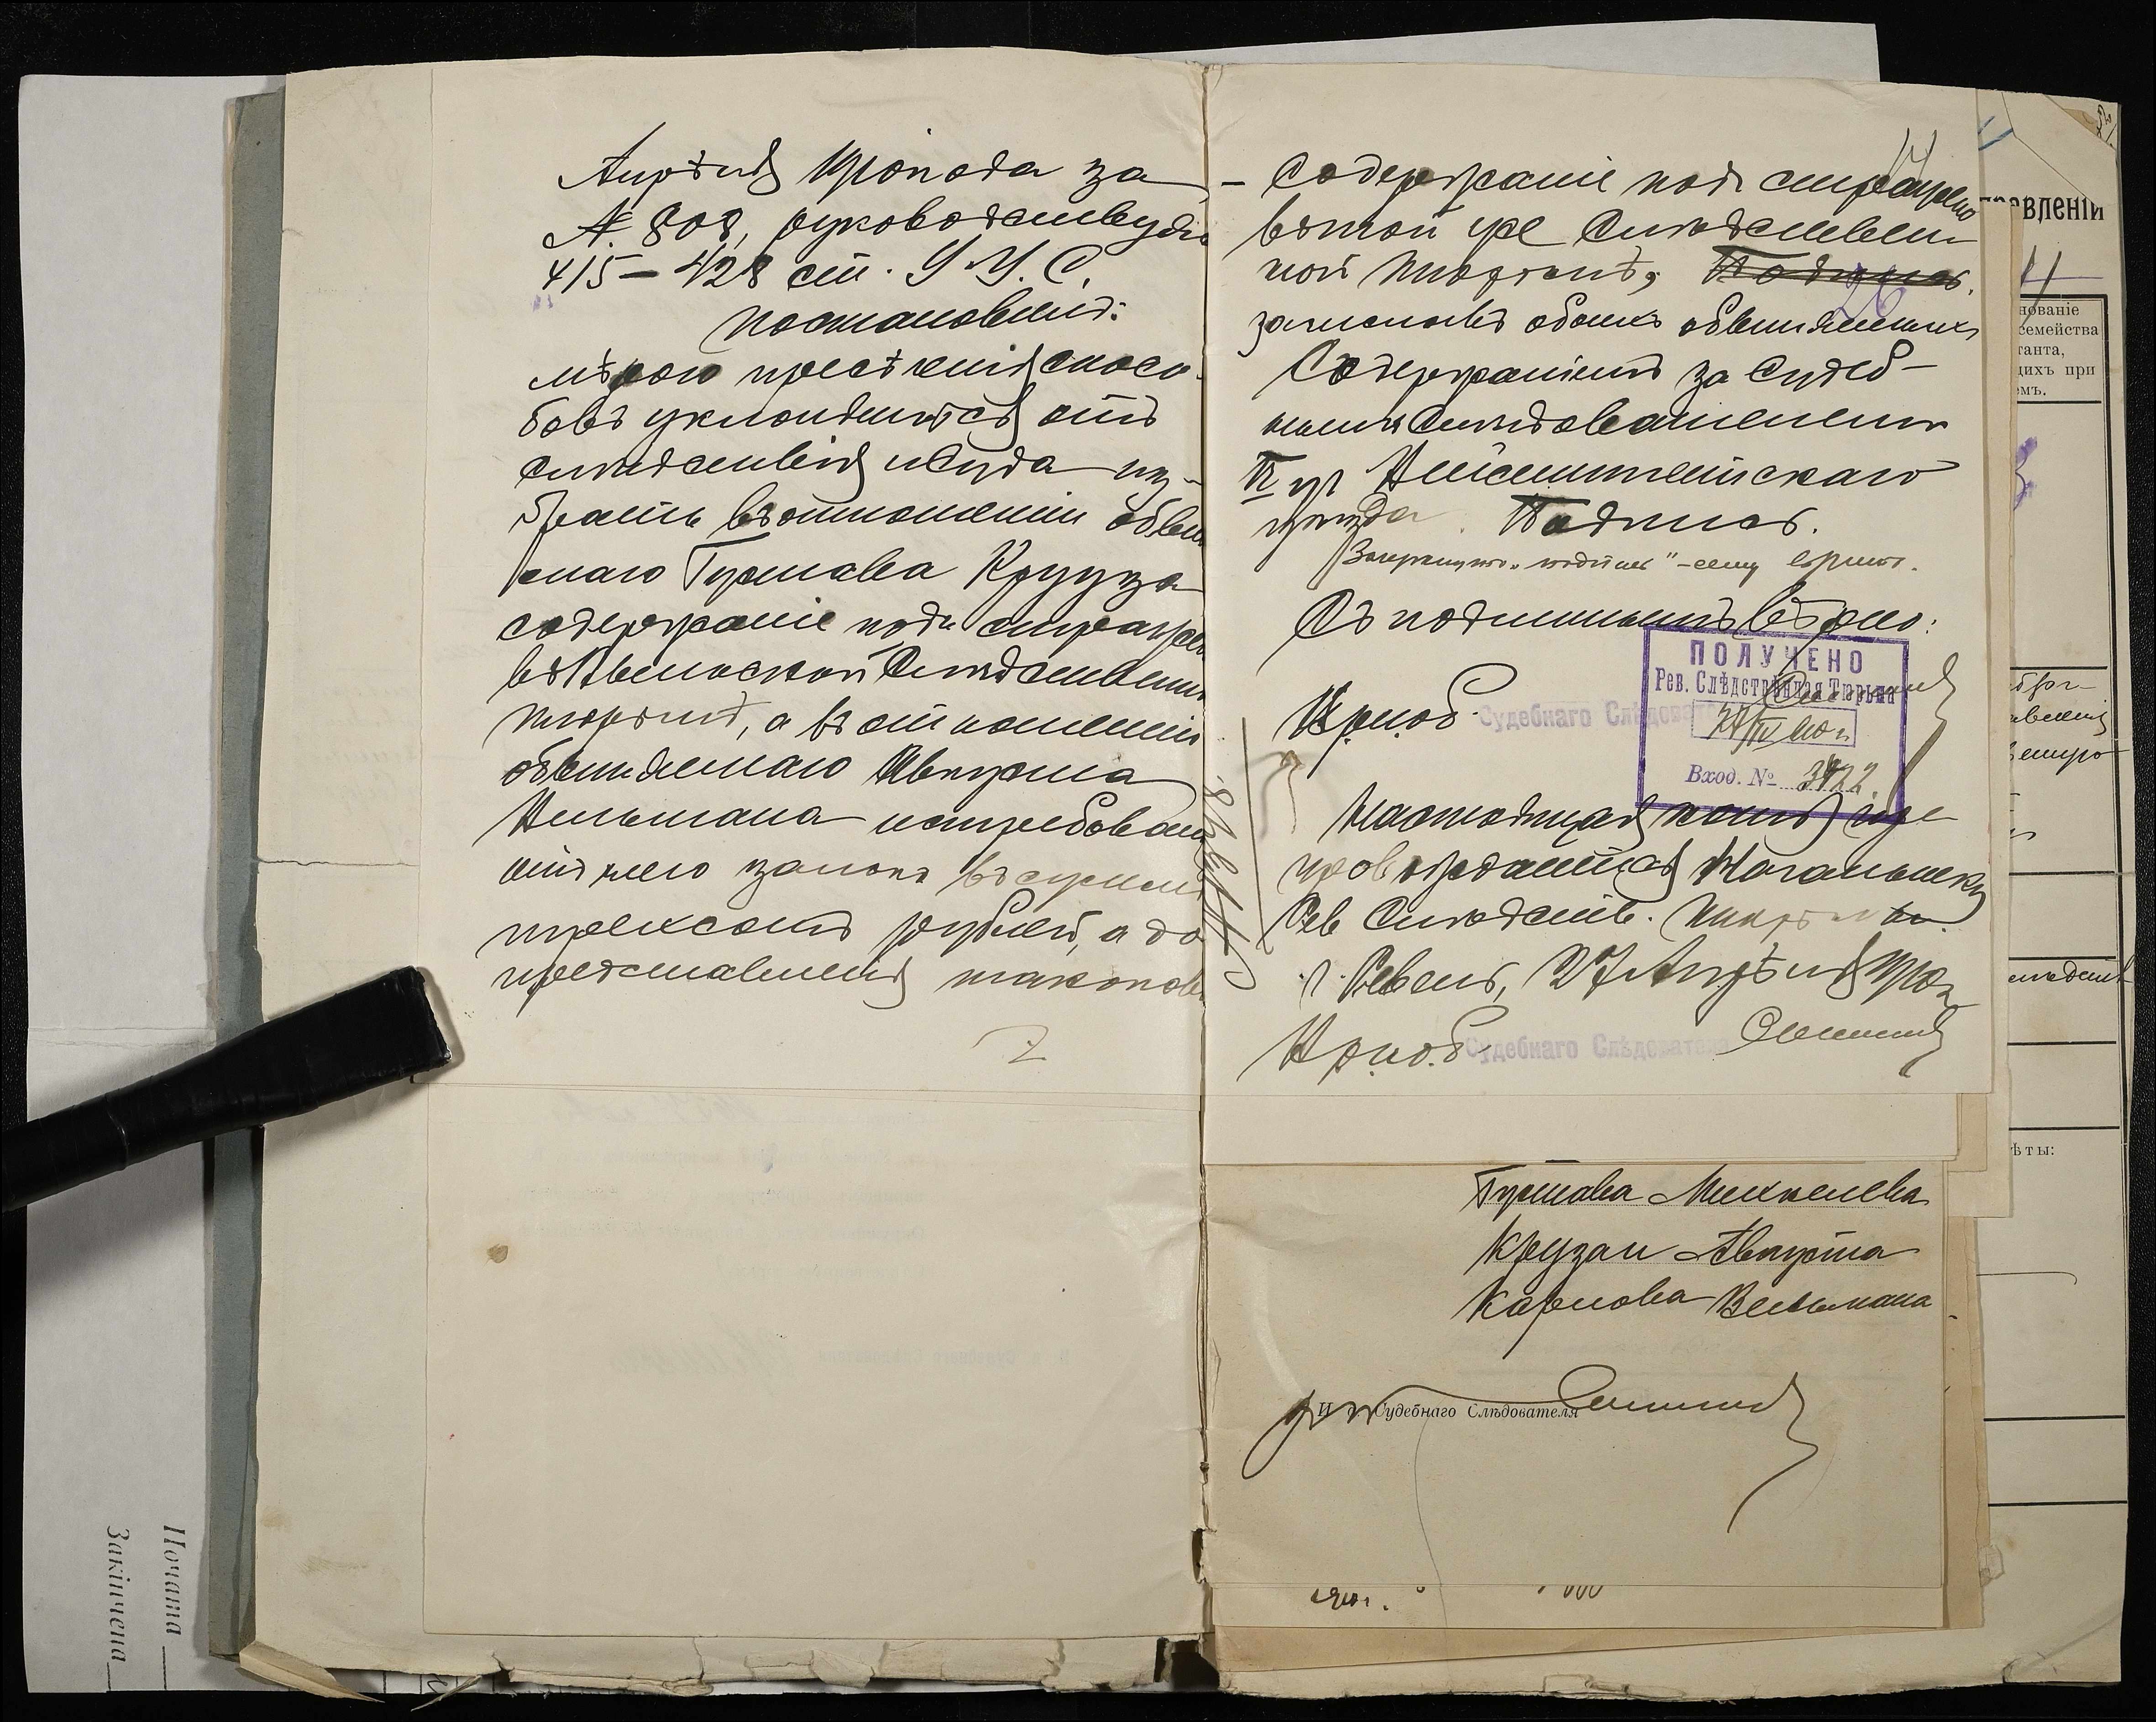 Апрѣля 1910 года за
№ 808, руководствуясь
415–428 ст. У. У. С.
постановилъ:
мѣрою пресѣченія спосо-
бовъ уклоняться отъ
слѣдствія и суда из-
брать въ отношеніи обвин
яемаго Густава Крууза
содержаніе подъ стражею
въ Ревельской Слѣдственной
тюрьмѣ, а въ отношеніи
обвиняемаго Августа
Вельмана истребовать
отъ него залогъ въ суммѣ
трехсотъ рублей, а до
представленія таковой
2
– содержаніе подъ стражею
въ той же Слѣдствен-
ной тюрьмѣ, Подпись.
зачисливъ обоихъ обвиняемыхъ
содержаніемъ за Судеб-
нымъ Слѣдователемъ
уч Вейсенштейнскаго
уѣзда. Подпись.
Зачеркнуто „подпись" – сему вѣрить.
Съ подлиннымъ вѣрно:
Судебнаго Слѣдователя
ПОЛУЧЕНО
Рев. Слѣдственная Тюрьма
27/IV 1910 г.
Вход. № 3422.
Настоящая копія пре-
провождается Начальнику
Рев Слѣдств. Тюрьмы.
г. Ревель, 27 Апрѣля 1910 г.
Судебнаго Слѣдователя
Густава Михкелева
Крузаи Августа
Карлова Вельмана
И. д. Судебнаго Слѣдователя
правленіи
нованіе
семейства
танта,
щихъ при
емъ.
ѣты:
Почата
Закінчена